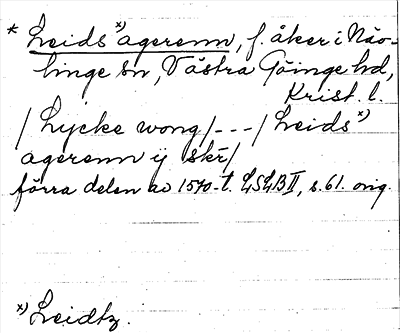 * Leids x) agerenn, f. åker i Näv-
linge sn, Västra Göinge hd,
Krist. l.
/ Lycke wong / - - - / Leids x)
agerenn ij skr̄ /
förra delen av 1570-t. LSLB II, s. 61. orig.
x) Leidtz.